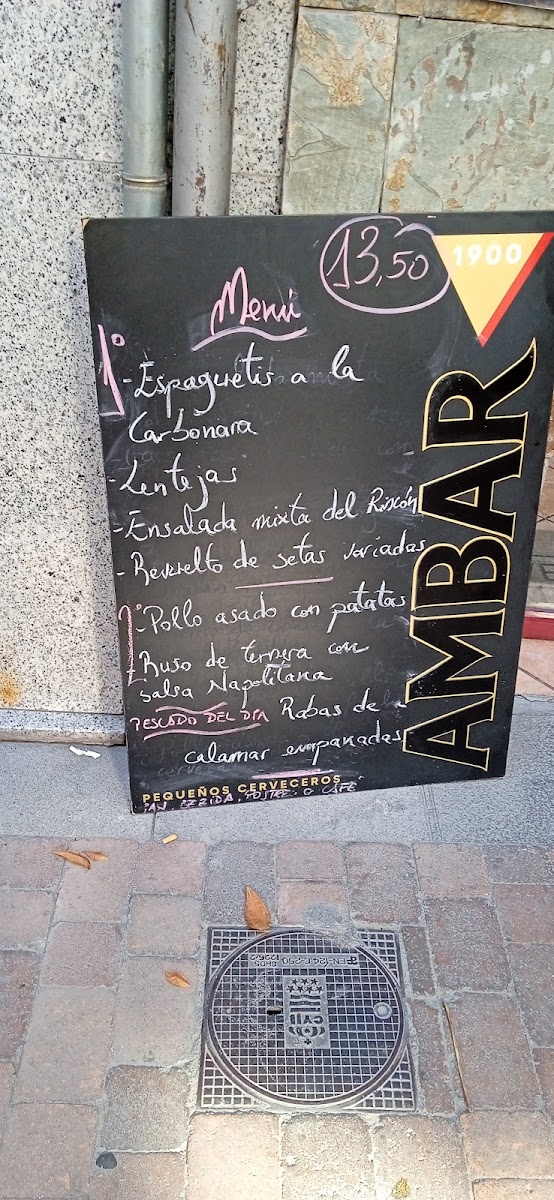 13,50
1900
Menú
1º
- Espaguetis a la
Carbonara
- Lentejas
- Ensalada mixta del Rincón
- Revuelto de setas variadas
2º
- Pollo asado con patatas
- Ruso de ternera con
salsa Napolitana
PESCADO DEL DÍA Rabas de
calamar empanadas
PEQUEÑOS CERVECEROS
PAN, BEBIDA, POSTRE O CAFÉ
AMBAR
EN-124 C-250